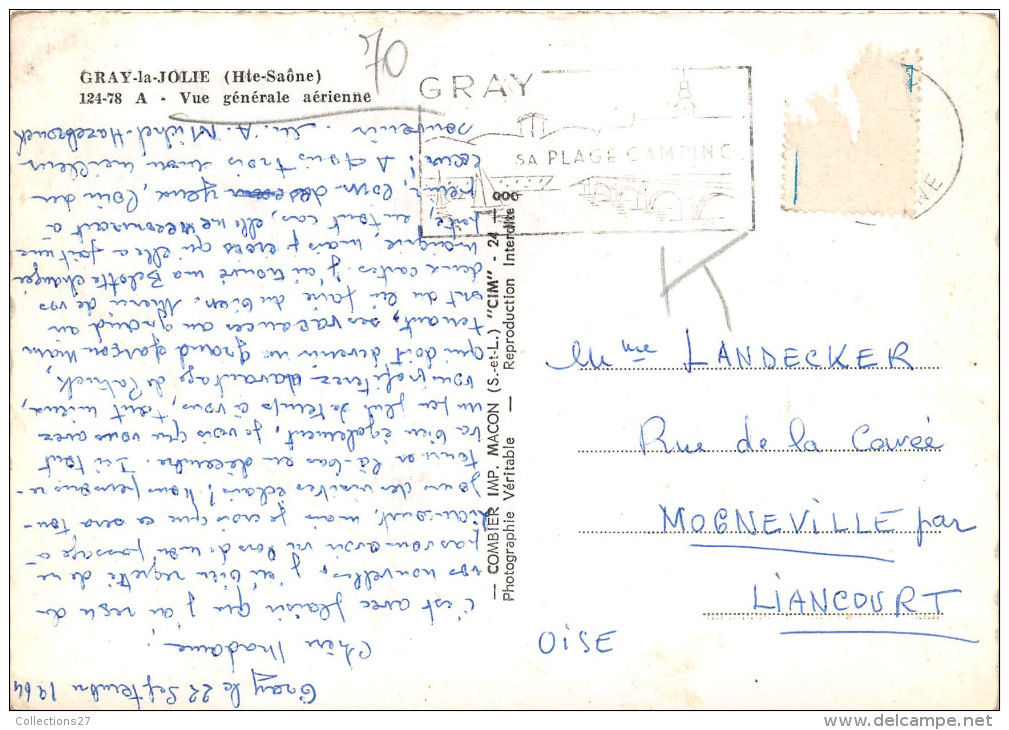 GRAY-la-JOLIE (Hte-Saône)
124-78 A - Vue générale aérienne
70
GRAY
SA PLAGE CAMPING
Gray le 22 Septembre 1964
Chère Madame,
C'est avec plaisir que j'ai reçu de
vos nouvelles, j'ai bien regretté de ne
pas vous avoir vu lors de mon passage à
Liancourt, mais je crois que ce sera tou-
jours des visites éclair! Nous pensons re-
tourner là-bas en décembre. Ici tout
va bien également, je vois que vous avez
un peu plus de temps à vous, tant mieux,
vous profiterez davantage de Patrick,
qui doit devenir un grand garçon main
tenant, ses vacances au grand air
ont du lui faire du bien. Merci de vos
deux cartes j'ai trouvé ma Belotte changée
maigrie, mais je crois qu'elle a fait une
, en tout cas, elle ne
loin des yeux, loin du
cœur! A tous trois mon meilleur
souvenir. A. Michel-Hazebrouck
— COMBIER IMP. MACON (S.-et-L.) "CIM" - 24 -
Photographie Véritable — Reproduction Interdite
Mme LANDECKER
Rue de la Cavée
MOGNEVILLE par
LIANCOURT
OISE
Collections27
delcampe.net